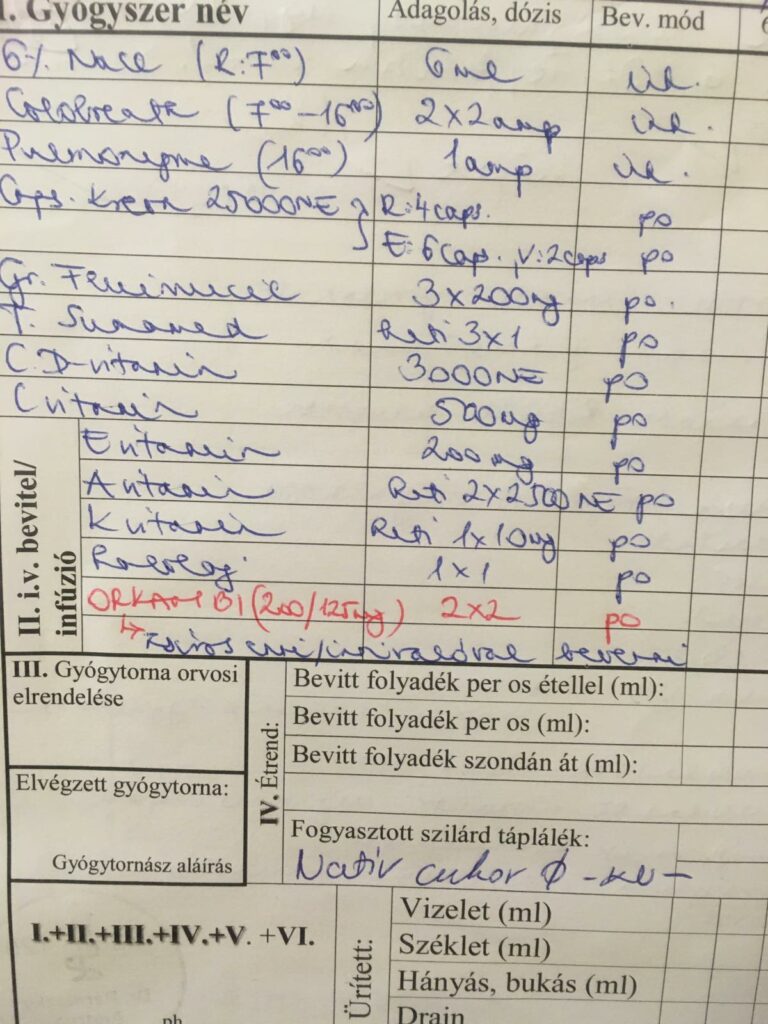 I. Gyógyszer név Adagolás, dózis Bev. mód
6% Nacl (R:7⁰⁰) 6ml inh.
Colobreath (7⁰⁰-16⁰⁰) 2x2amp inh.
Pulmozyme (16⁰⁰) 1amp inh.
Caps. Kreon 25000NE } R:4caps. po
E:6caps., V:2caps po
Gr. Fluimucil 3x200mg po.
T. Sumamed Heti 3x1 po
C. D-vitamin 3000NE po
C vitamin 500mg po
E vitamin 200mg po
A vitamin Heti 2x2500NE po
K vitamin Heti 1x10mg po
1x1 po
ORKAMBI (200/125mg) 2x2 po
↳ Zsíros bevenni
II. i.v. bevitel/
infúzió
III. Gyógytorna orvosi
elrendelése
Elvégzett gyógytorna:
Gyógytornász aláírás
IV. Étrend:
Bevitt folyadék per os étellel (ml):
Bevitt folyadék per os (ml):
Bevitt folyadék szondán át (ml):
Fogyasztott szilárd táplálék:
Natív cukor Ø
I.+II.+III.+IV.+V. +VI.
ph
Ürített:
Vizelet (ml)
Széklet (ml)
Hányás, bukás (ml)
Drain